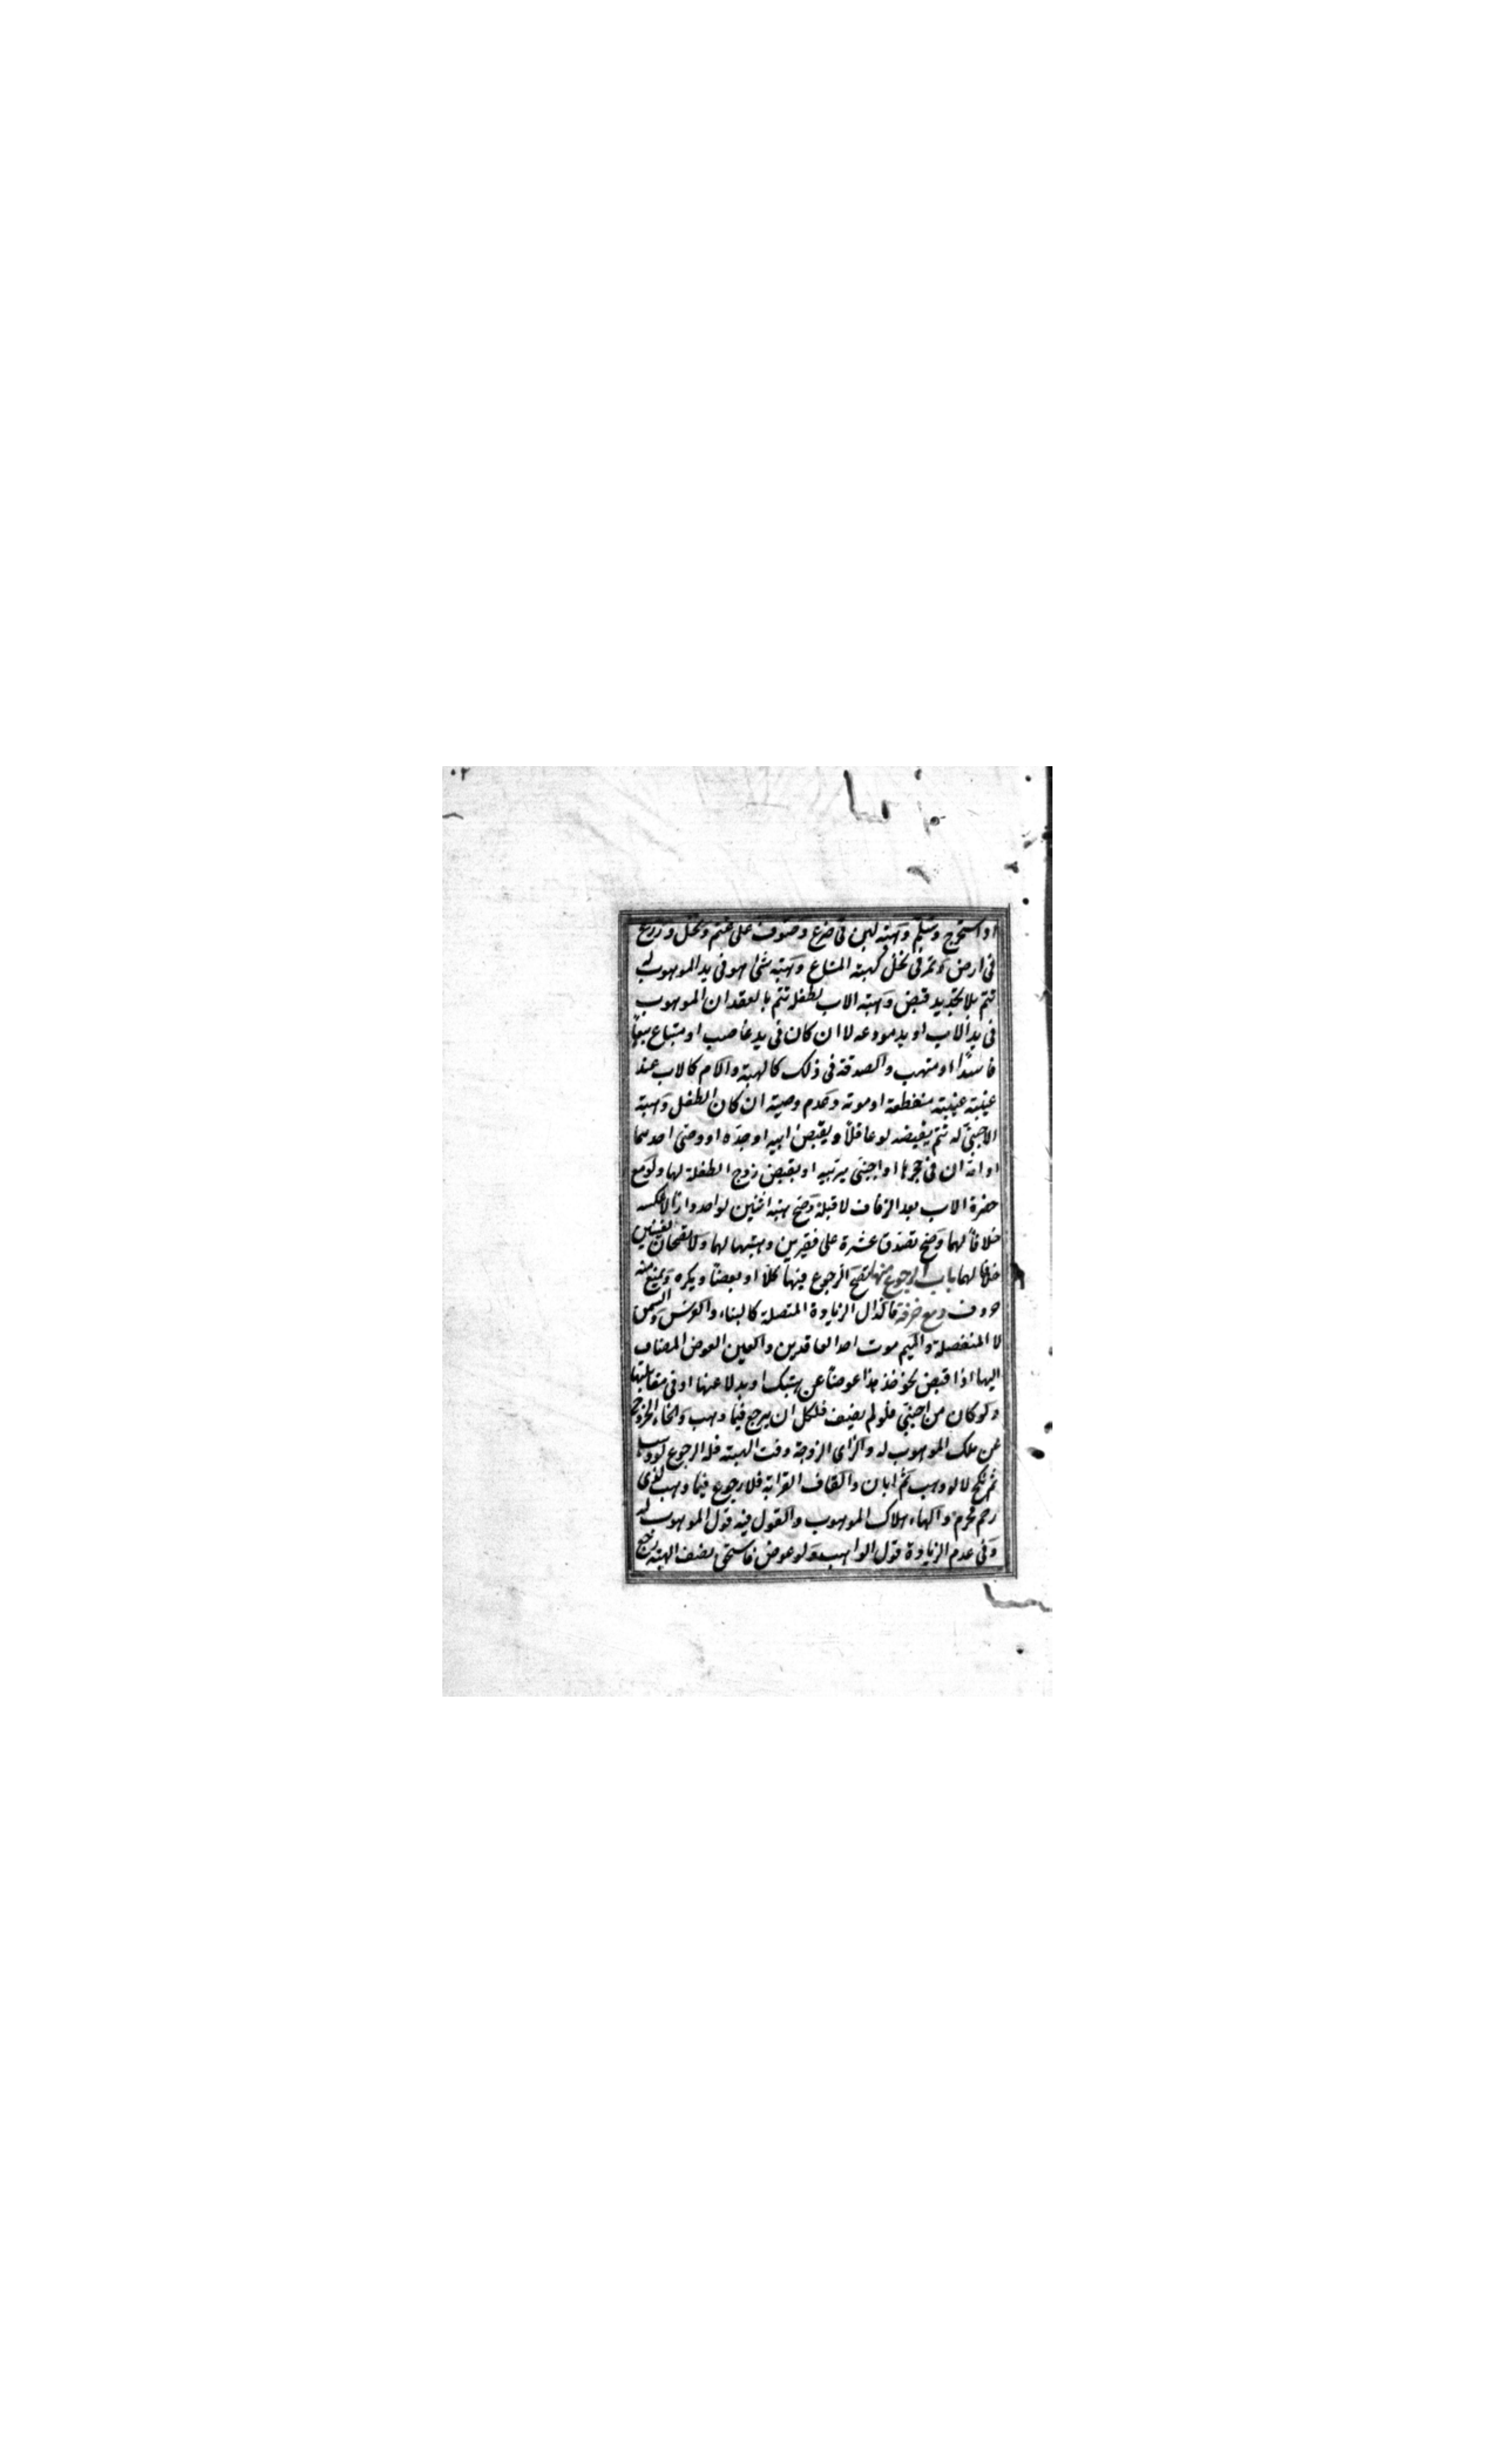 او استخرج وسلم وهبة لبن في ضرع وصوف على غنم ونخل وزرع
في ارض وتمر في نخل كهبة المشاع وهبة شئ هو في يد الموهوب له
تتم بلا تجديد قبض وهبة الاب لطفله تتم بالعقد ان الموهوب
في يد الاب او يد مودعه لا ان كان في يد غاصب او مبتاع بيعا
فاسدا او متهب والصدقة في ذلك كالهبة والام كالاب عند
غيبته غيبة منقطعة او موته وعدم وصيه ان كان الطفل وهبة
الاجنبي له تتم بقبضه لو عاقلا وبقبض ابيه او جده او وصي احدهما
او امه ان في حجرها او اجنبي يربيه او بقبض زوج الطفلة لها ولو مع
حضرة الاب بعد الزفاف لا قبله وصح هبة اثنين لواحد دارا لا عكسه
خلافا لهما وصح تصدق عشرة على فقيرين وهبتها لهما ولا تصحان لغنيين
خلافا لهما باب الرجوع منها يصح الرجوع فيها كلا او بعضا ويكره ويمنع منه
حروف دمع خزقه فالدال الزيادة المتصلة كالبناء والغرس والسمن
لا المنفصلة والميم موت احد العاقدين والعين العوض المضاف
اليها اذا قبض نحو خذ هذا عوضا عن هبتك او بدلا عنها او في مقابلتها
ولو كان من اجنبي فلو لم يضف فلكل ان يرجع فيما وهب والخاء الخروج
عن ملك الموهوب له والزاي الزوجة وقت الهبة فله الرجوع لو وهب
ثم نكح لا لو وهب ثم ابان والقاف القرابة فلا رجوع فيما وهب لذي
رحم محرم والهاء هلاك الموهوب والقول فيه قول الموهوب له
وفي عدم الزيادة قول الواهب ولو عوض فاستحق نصف الهبة رجع